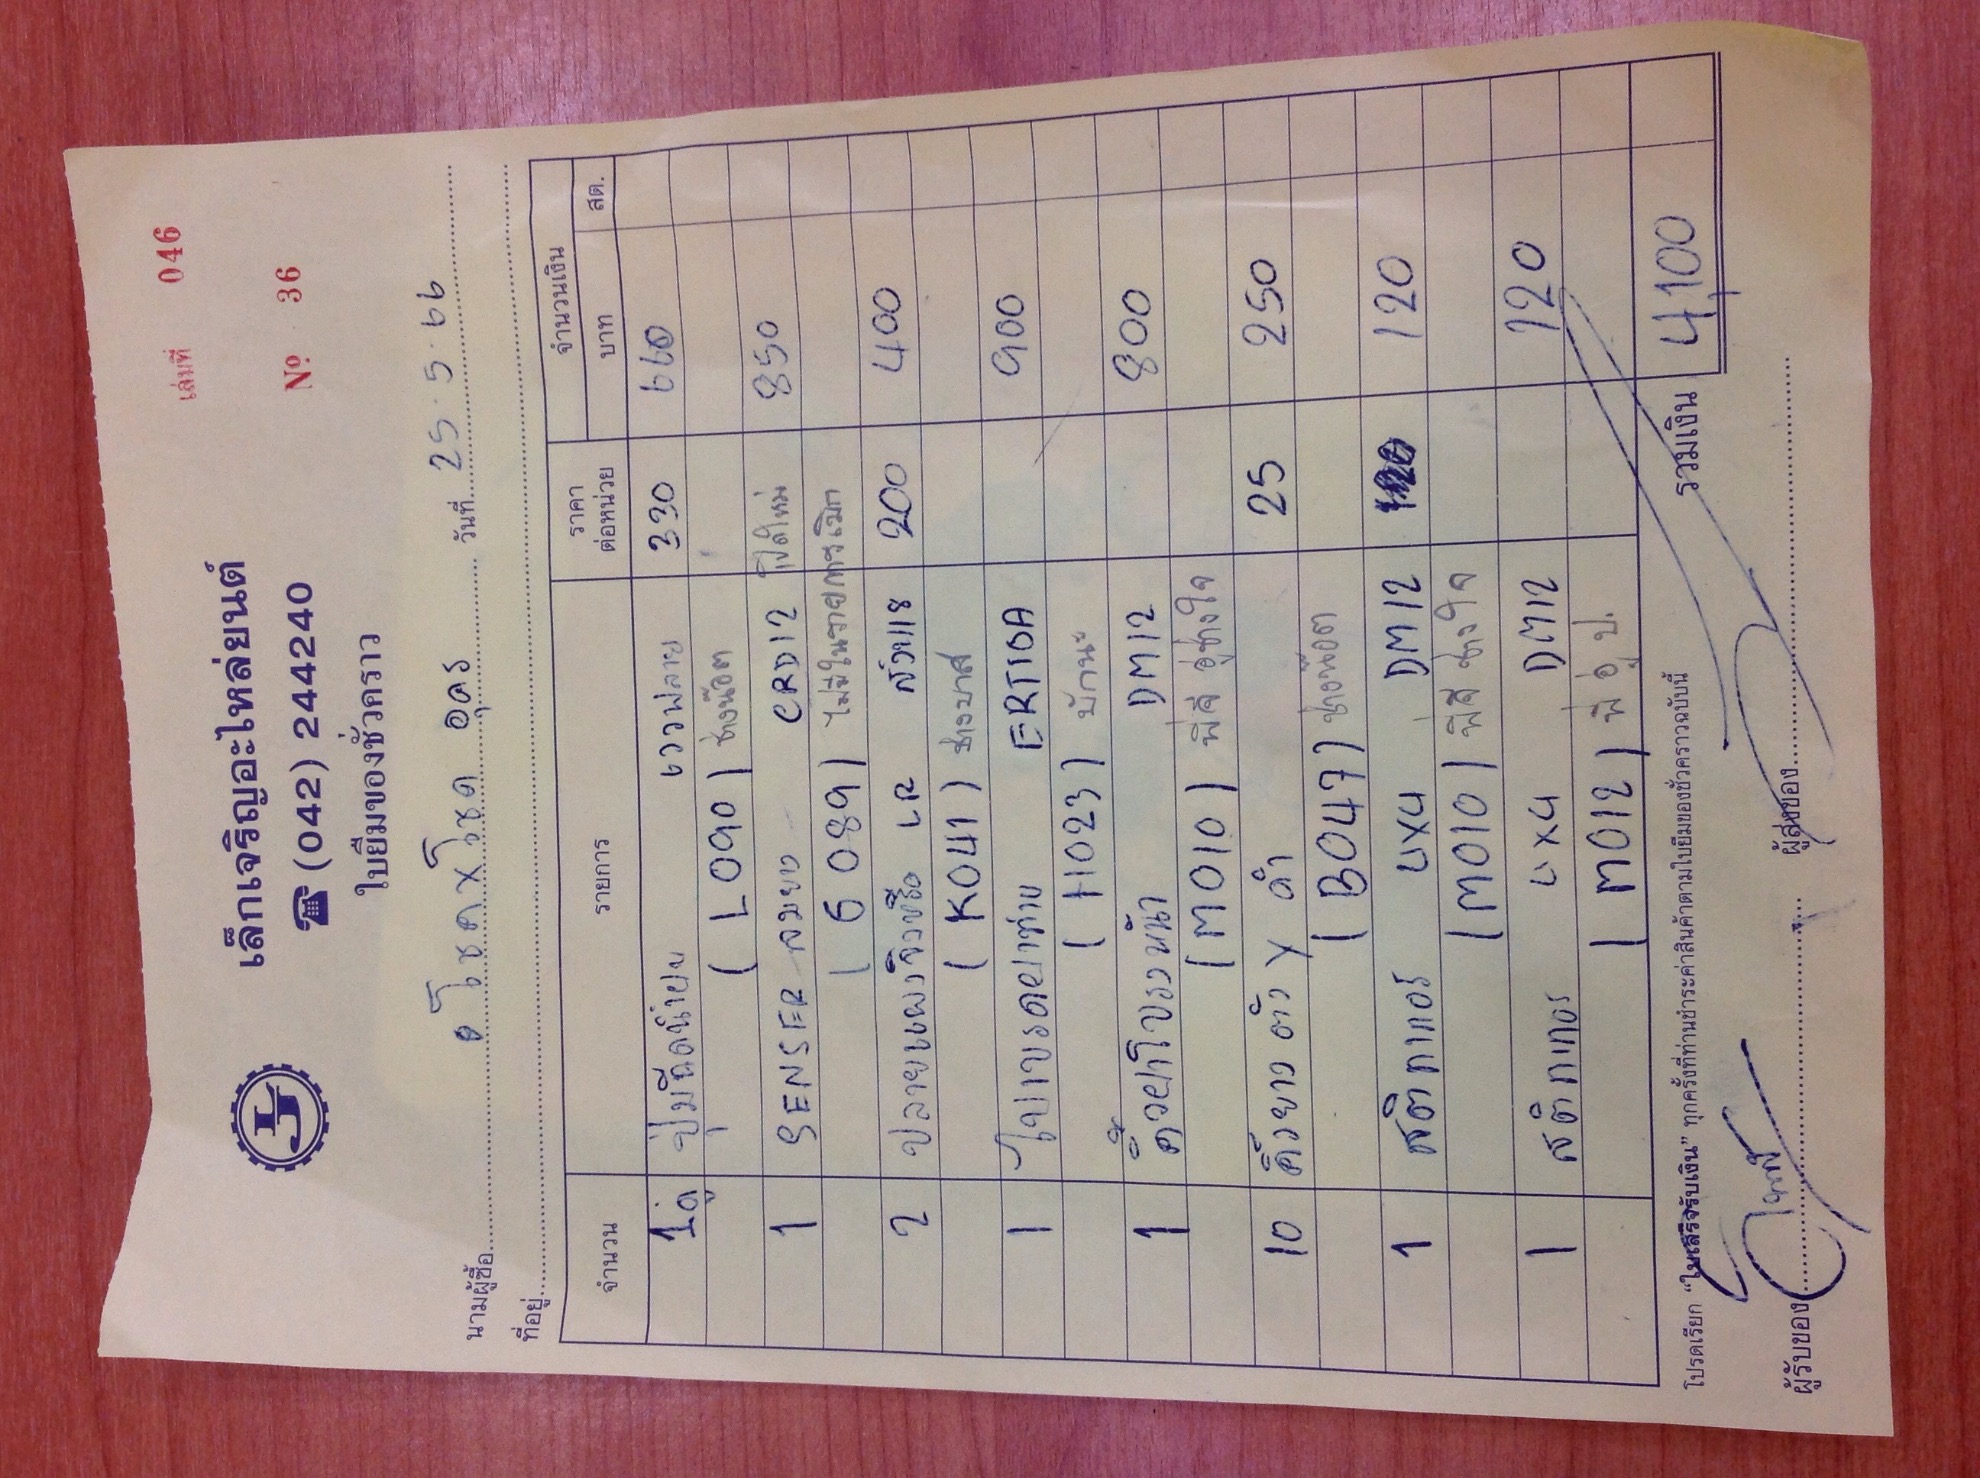 เล่มที่ 046
เล็กเจริญอะไหล่ยนต์
☎ (042) 244240
Nº 36
ใบยืมของชั่วคราว
นามผู้ซื้อ อ โชค x โชค อุดร วันที่ 25.5.66
ที่อยู่
จำนวน รายการ ราคาต่อหน่วย จำนวนเงิน
บาท สต.
1คู่ ปุ่มฉีดน้ำฝน เวฟลาย 330 660
( L090 ) ช่างน๊อต
1 SENSER CRD12 850
( G 089 ) ไม่มีในรายการเบิก
2 LR 200 400
( K041 ) ช่างบาส
1 ERTIGA 900
( H023 )
1 คิ้วฝาโปรงหน้า DM12 800
( M010 ) พี่สี อู่ช่างใจ
10 คิ้วยาง ตัว Y ดำ 25 250
( B047 ) ช่างน๊อต
1 สติกเกอร์ 4x4 DM12 120 120
( M010 ) พี่สี ช่างใจ
1 สติกเกอร์ 4x4 DM12 120
( M012 ) พี่ อู่ ป.
รวมเงิน 4100
โปรดเรียก "ใบเสร็จรับเงิน" ทุกครั้งที่ท่านชำระค่าสินค้าตามใบยืมของชั่วคราวฉบับนี้
ผู้รับของ ผู้ส่งของ